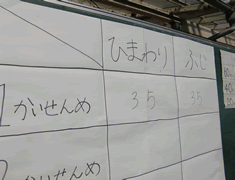 ひまわり ふじ
1かいせんめ 35 35
かいせんめ